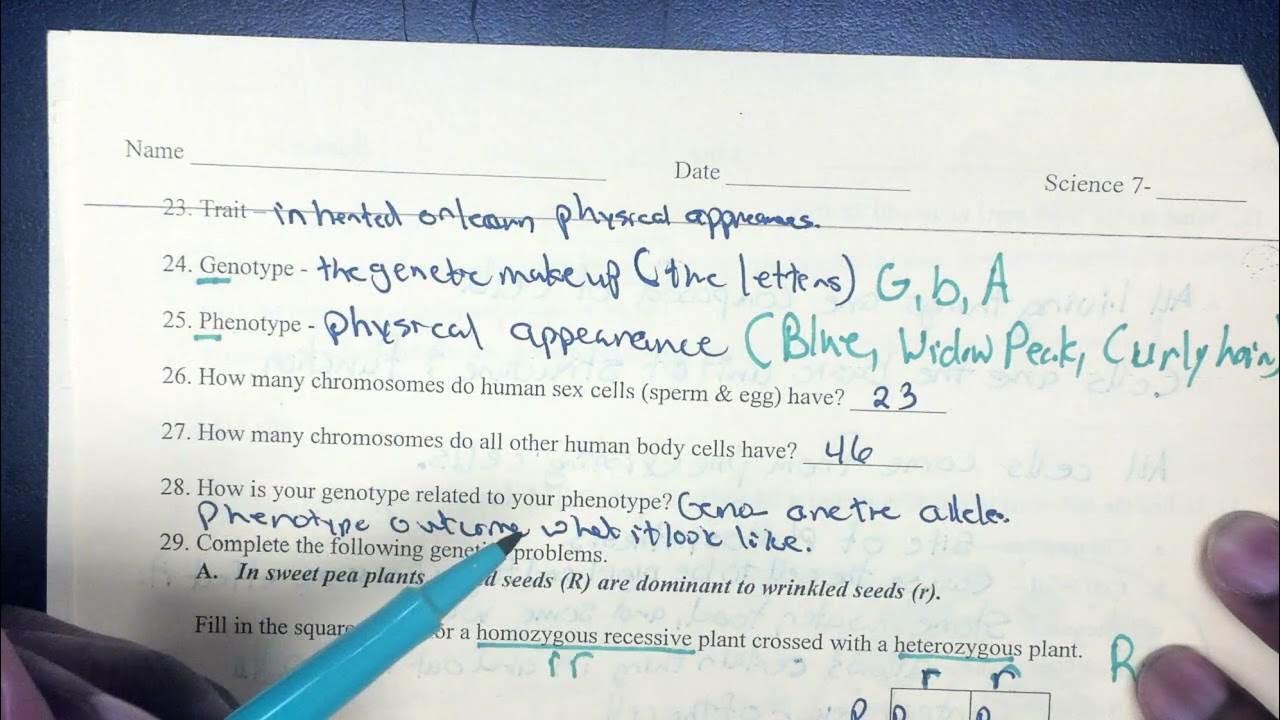 Name Date Science 7-
23. Trait - inherited or learn physical appreances.
24. Genotype - the genetic makeup (the letters) G, b, A
25. Phenotype - physical appearance (Blue, Widow Peak, Curly hair)
26. How many chromosomes do human sex cells (sperm & egg) have? 23
27. How many chromosomes do all other human body cells have? 46
28. How is your genotype related to your phenotype? are the allele.
Phenotype outcome what it look like.
29. Complete the following problems.
A. In sweet pea plants seeds (R) are dominant to wrinkled seeds (r).
Fill in the or a homozygous recessive plant crossed with a heterozygous plant. R
rr r r
R R R